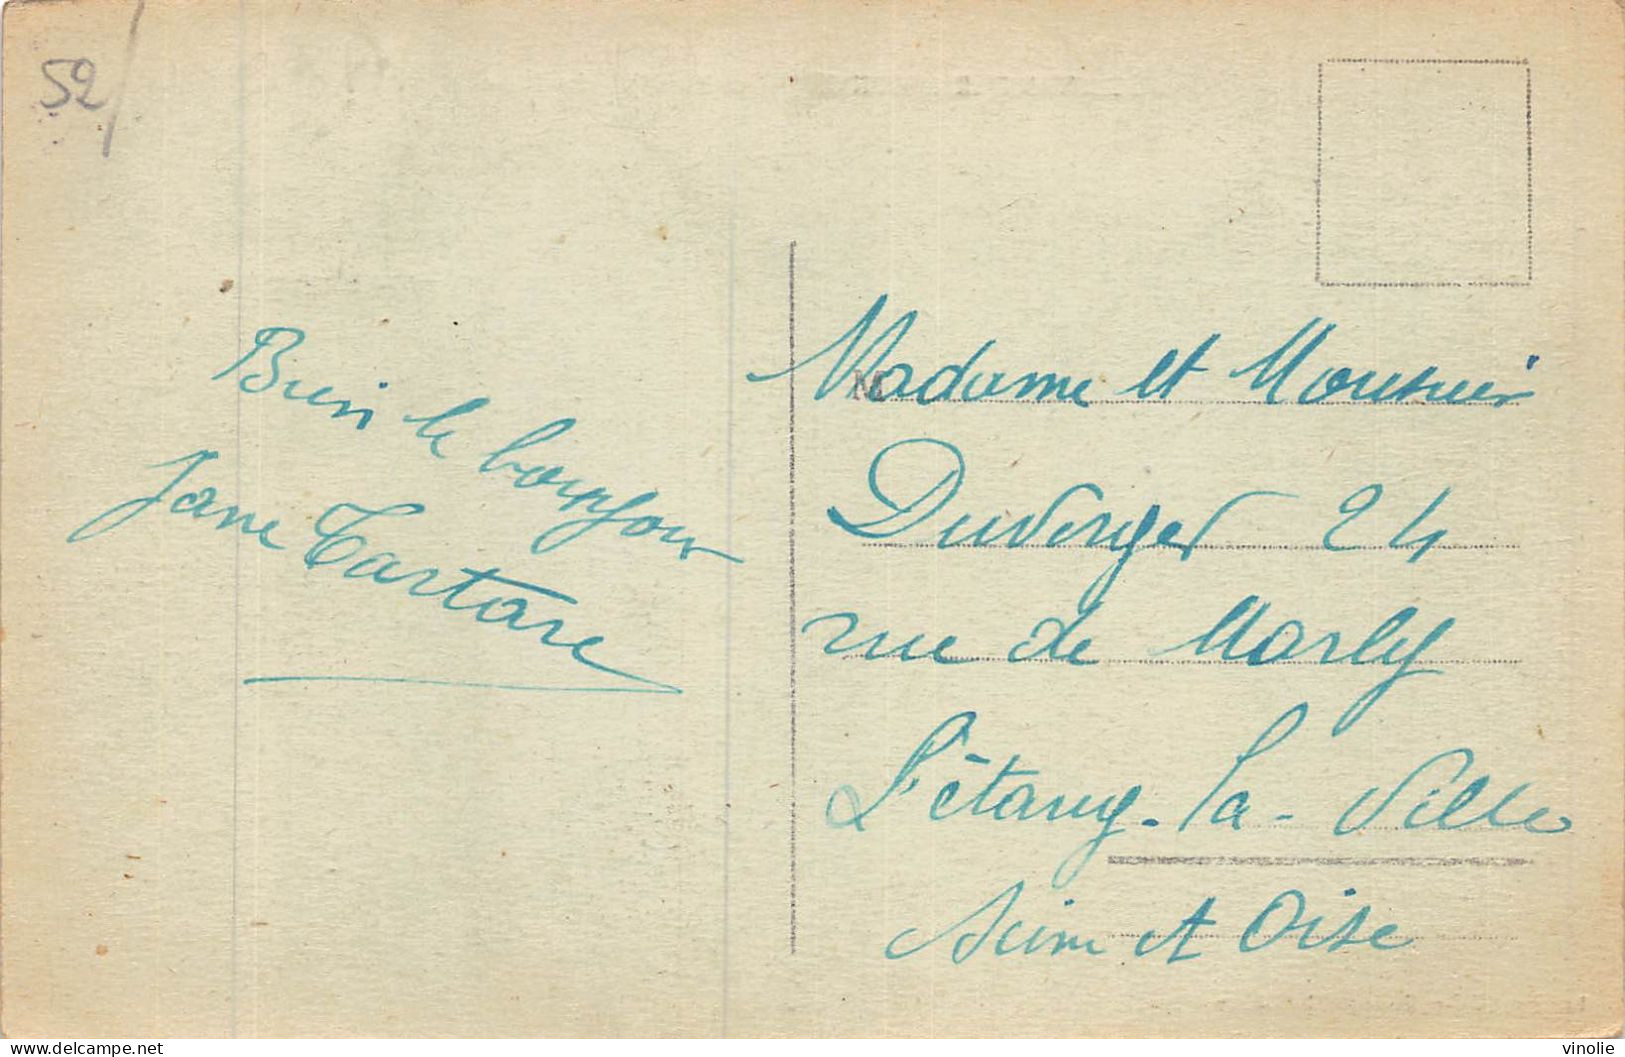 52
Bien le bonjour
Jane Tartare
M
Madame et Monsieur
Duverger 24
rue de Marly
L'étang-la-Ville
Seine et Oise
delcampe.net
vinolie